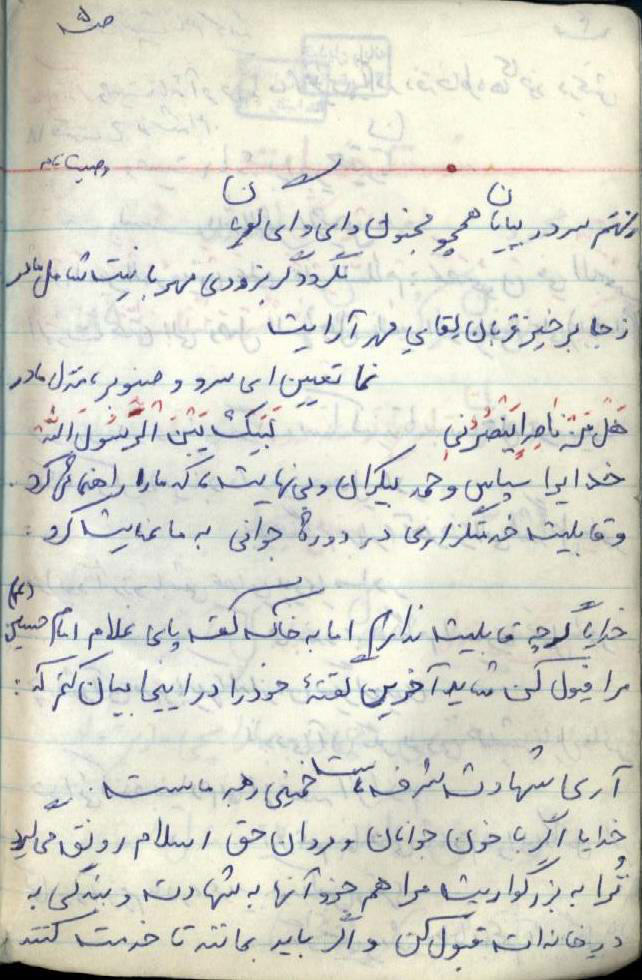 ص ۵
وصیتنامه
نهم سر در بیابان همچو مجنون وای وای لعرنا
نگردد گر بزودی مهربانیت شامل مادر
ز جا برخیز قربان لقای مهر آرایت
نما تعیین ای سرو و صنوبر، منزل مادر
هَل مِن ناصِرٍ یَنصُرُنی لَبَیک یَبنَ الرَسُولَ الله
خدایا سپاس و حمد بیکران و بی نهایت، که ما را راهنمائی کرد.
و قابلیت خدمتگزاری در دورهٔ جوانی به ما عنایت کرد:
خدایا گرچه قابلیت ندارم اما به خاک کف پای غلام امام حسین (ع)
مرا قبول کن شاید آخرین گفتهٔ خود را در اینجا بیان کنم که:
آری شهادت شرف ماست خمینی رهبر ماست.
خدایا اگر با خون جوانان و مردان حق اسلام رونق می گیرد
تُرا به بزرگواریت مرا هم جزو آنها به شهادت و بندگی به
در خانه ات قبول کن و اگر باید بمانند تا خدمت کنند